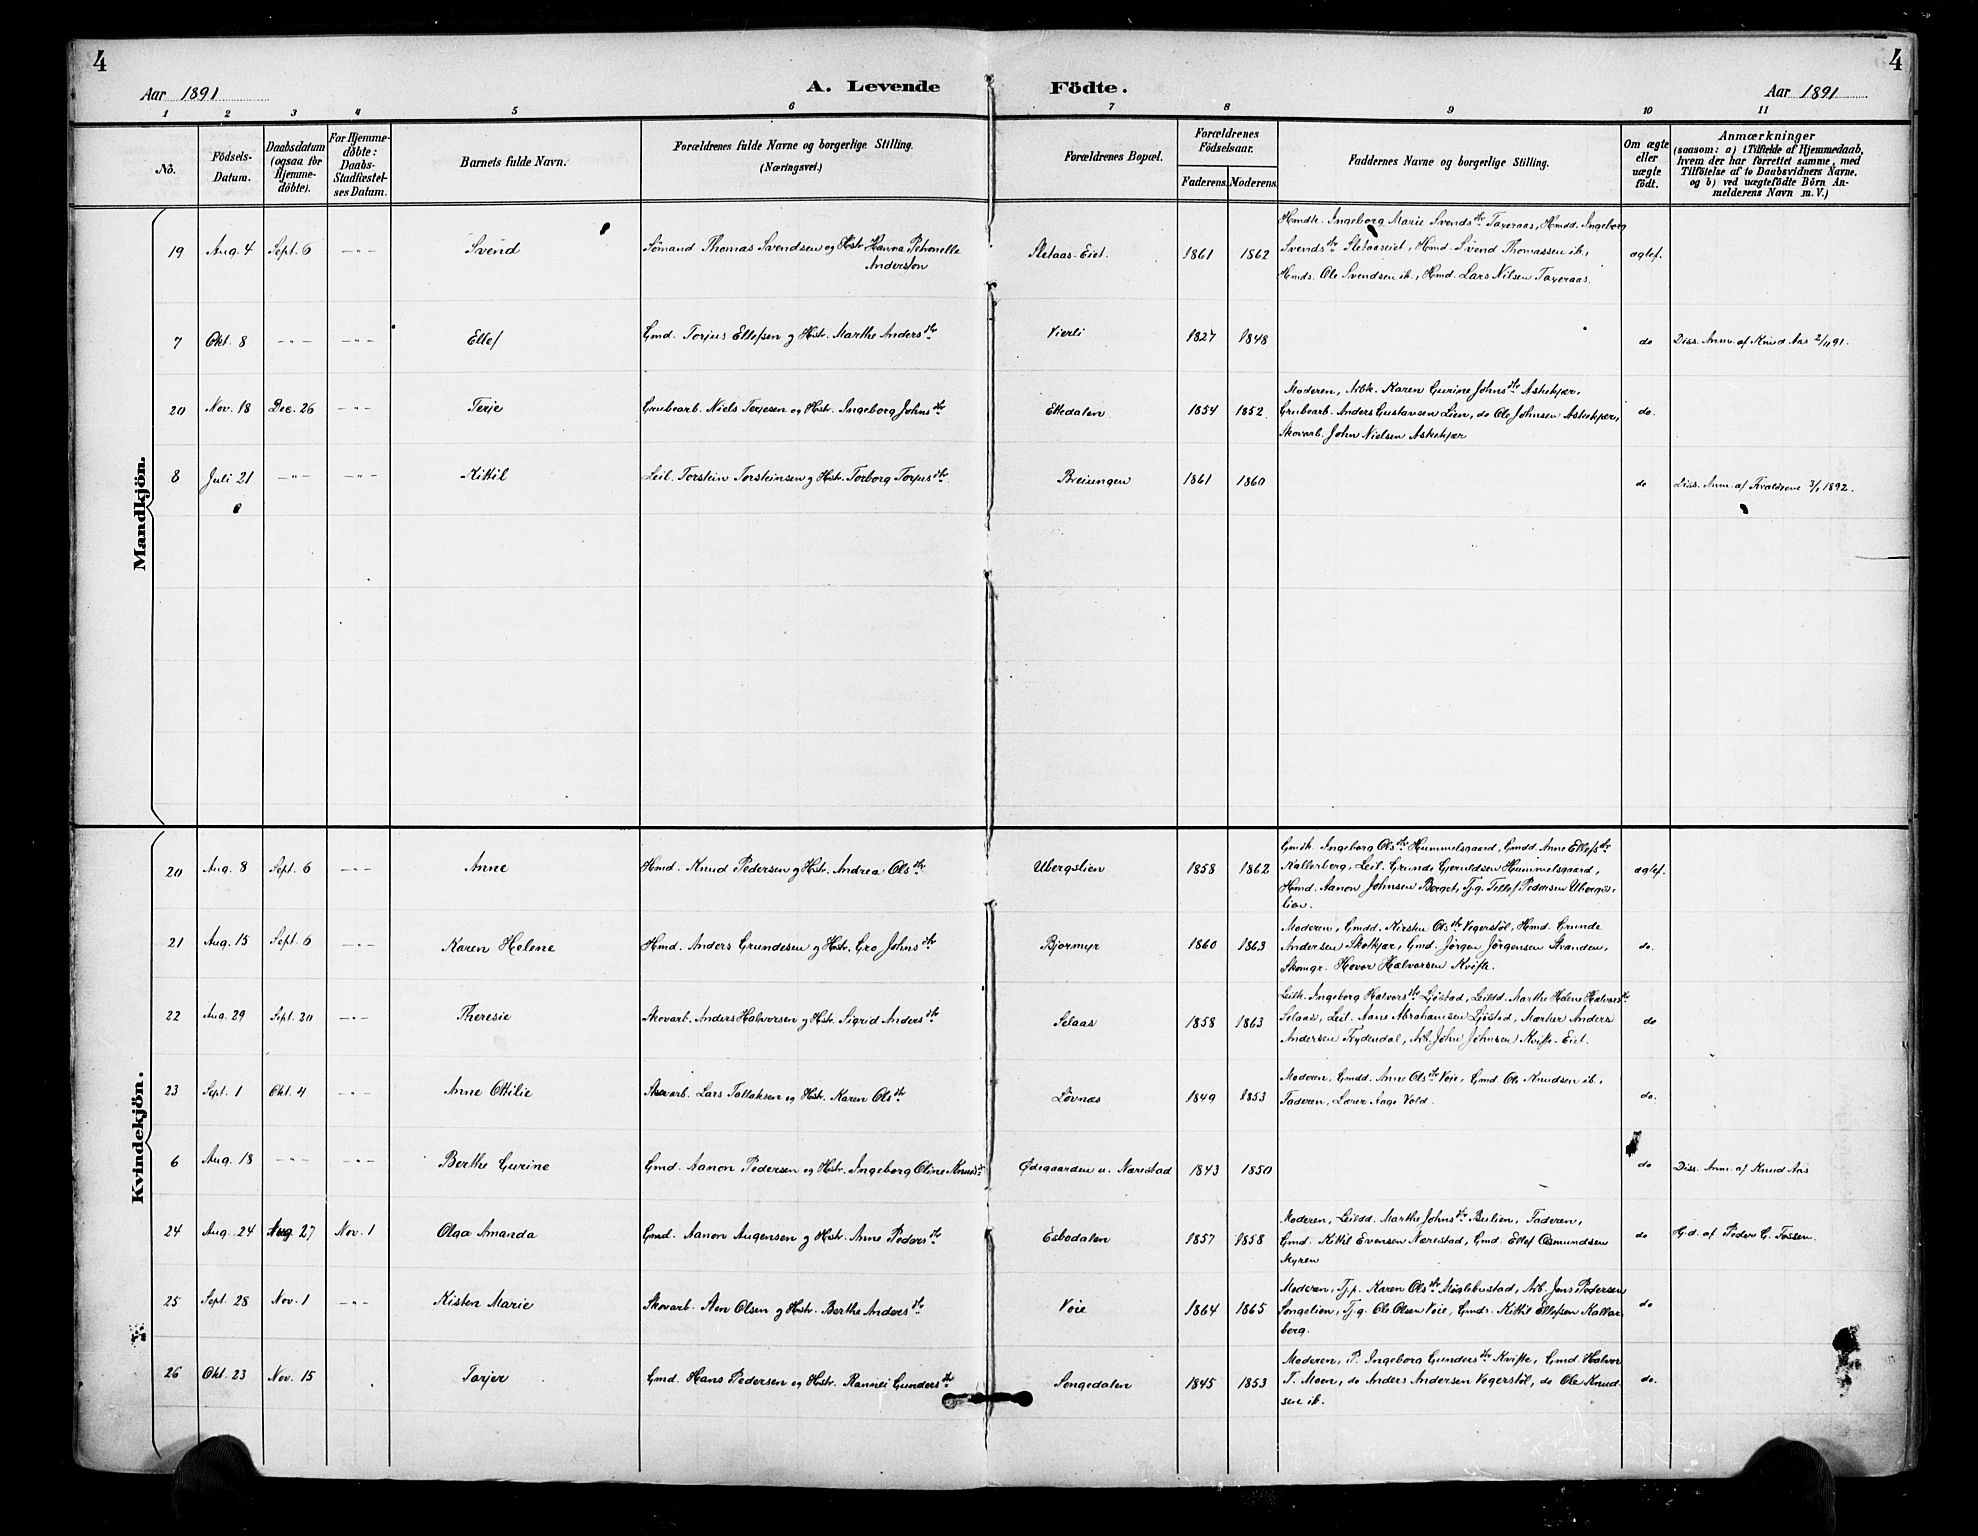 4
4
Aar 1891
A. Levende Födte.
Aar 1891
1 2 3 4 5 6 7 8 9 10 11
No.
Födsels-
Datum.
Daabsdatum
(ogsaa for
Hjemme-
döbte).
For Hjemme-
döbte:
Daabs-
Stadfæstel-
ses Datum.
Barnets fulde Navn.
Forældrenes fulde Navne og borgerlige Stilling.
(Næringsvei.)
Forældrenes Bopæl.
Forældrenes
Födselsaar.
Faderens. Moderens.
Faddernes Navne og borgerlige Stilling.
Om ægte
eller
uægte
födt.
Anmærkninger
(saasom: a) i Tilfælde af Hjemmedaab,
hvem der har forrettet samme, med
Tilföielse af to Daabsvidners Navne,
og b) ved uægtefödte Börn An-
melderens Navn m. V.)
Mandkjön.
19 Aug. 4 Sept. 6 -"- Svend Sömand Thomas Svendsen og Hstr. Hanna Petronelle
Anderston
Sletaas-Eiet. 1861 1862
Hmdk. Ingeborg Marie Svendsdtr Taxeraas, Hmdd. Ingeborg
Svendsdtr Sletaaseiet, Hmd. Svend Thomassen ib.,
Hmds. Ole Svendsen ib., Hmd. Lars Nilsen Taxeraas.
ægtef.
7 Okt. 8 -"- -"- Ellef Gmd. Torjus Ellefsen g Hstr. Marthe Andersdtr Vierli 1827 1848 do Diss. Anm. af Knud Aas 2/11 91.
20 Nov. 18 Dec. 26 -"- Terje Grubearb. Niels Terjesen og Hstr. Ingeborg Johnsdtr Elledalen 1854 1852
Moderen, Arbk. Karen Gurine Johnsdtr Askekjær,
Grubearb. Anders Gustavsen Lien, do Ole Johnsen Askekjær,
Skovarb. John Nielsen Askekjær
do.
8 Juli 21 -"- -"- Kittil Leil. Torstein Torsteinsen g Hstr. Torborg Torjusdtr. Breiungen 1861 1860 do Diss. Anm. af 3/1 1892.
Kvindekjön.
20 Aug. 8 Sept. 6 -"- Anne Hmd. Knud Pedersen g Hstr. Andrea Olsdtr Ubergslien 1858 1862
Gmdk. Ingeborg Olsdtr Hummelsgaard, Gmdd. Anne Ellefsdtr
Kallerberg, Leil. Grunde Gjeruldsen Hummelsgaard,
Hmd. Aanon Johnsen Berget, Tj.g. Tellef Pedersen Ubergs-
lien.
ægtef.
21 Aug. 15 Sept. 6 -"- Karen Helene Hmd. Anders Grundesen g Hstr. Gro Johnsdtr Bjormyr 1860 1863
Moderen, Gmdd. Kirsten Olsdtr Vegerstöl, Hmd. Grunde
Andersen Skotkjær, Gmd. Jörgen Jörgensen Stranden,
Skomgr. Hovor Halvorsen Kvifte.
do.
22 Aug. 29 Sept. 20 -"- Theresie Skovarb. Anders Halvorsen g Hstr. Sigrid Andersdtr Selaas 1858 1863
Leilk. Ingeborg Halvorsdtr Ljöstad, Leildd. Marthe Helene Halvorsdtr
Selaas, Leil. Aane Abrahamsen Ljöstad, Mærker Anders
Andersen Frydendal, Arb. John Johnsen Kvifte-Eiet.
do
23 Sept. 1 Okt. 4 -"- Anne Ottilie Skovarb. Lars Tallaksen og Hstr. Karen Olsdtr Lövnæs 1849 1853
Moderen, Gmdd. Anne Olsdtr Veie, Gmd. Ole Knudsen ib.,
Faderen, Lærer Aage Vold.
do.
6 Aug. 18 -"- -"- Berthe Gurine Gmd. Aanon Pedersen og Hstr. Ingeborg Oline Knudsdtr Ødegaarden u. Nærestad 1843 1850 do Diss. Anm. af Knud Aas
24 Aug. 24 Aug. 27 Nov. 1 Olga Amanda Gmd. Aanon Augensen g Hstr. Anne Pedersdtr Esbodalen 1857 1858
Moderen, Leildd. Marthe Johnsdtr Beilien, Faderen,
Gmd. Kittil Evensen Nærestad, Gmd. Ellef Osmundsen
Myren
do H.d. af Peder G. Fossen.
25 Sept. 28 Nov. 1 -"- Kisten Marie Skovarb. Aen Olsen g Hstr. Berthe Andersdtr Veie 1864 1865
Moderen, Tj.p. Karen Olsdtr Möglebustad, Arb. Jens Pedersen
Songelien, Tj.g. Ole Olsen Veie, Gmds. Kittil Ellefsen Kallar-
berg.
do
26 Okt. 23 Nov. 15 Tarjer Gmd. Hans Pedersen og Hstr. Rannei Gundersdtr Songedalen 1845 1853
Moderen, P. Ingeborg Gundersdtr Kvifte, Gmd. Halvor
T. Moen, do Anders Andersen Vegerstöl, do Ole Knud-
sen ib.
do.